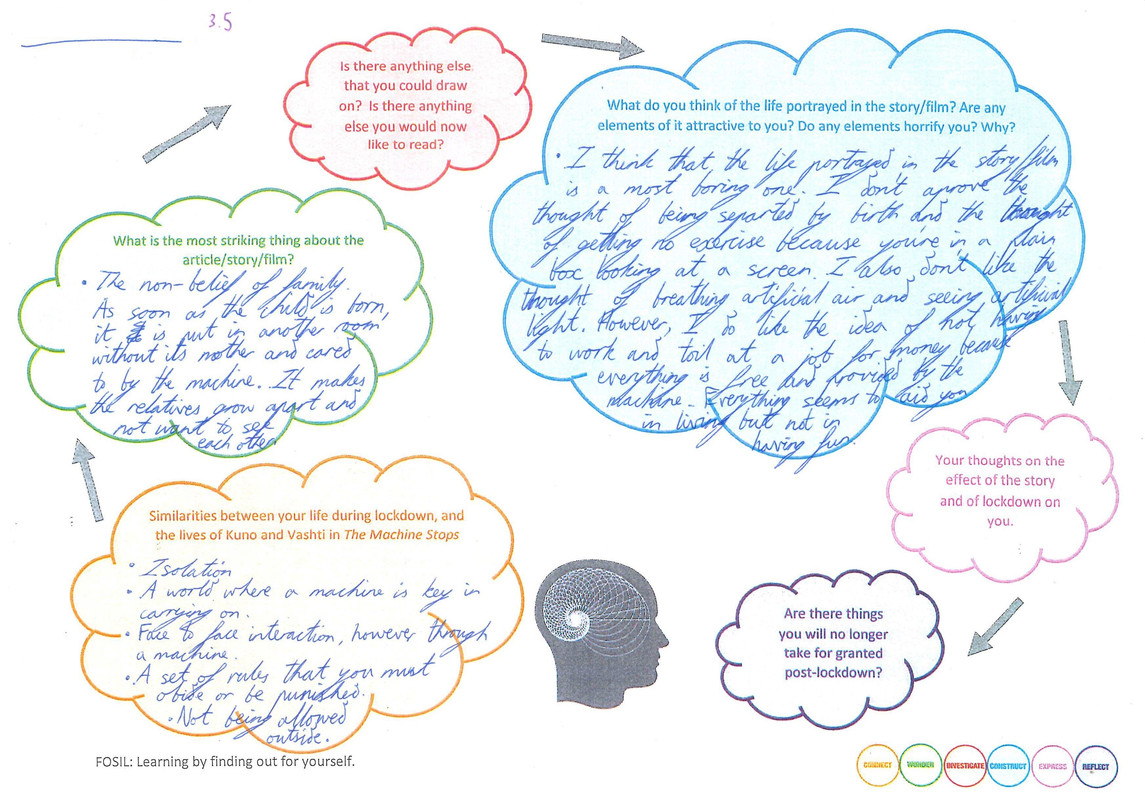 3.5
Is there anything else
that you could draw
on? Is there anything
else you would now
like to read?
What do you think of the life portrayed in the story/film? Are any
elements of it attractive to you? Do any elements horrify you? Why?
• I think that the life portrayed in the story/film
is a most boring one. I don't aprove the
thought of being separted by birth and the thought
of getting no exercise because you're in a plain
box looking at a screen. I also don't like the
thought of breathing artificial air and seeing artificial
light. However, I do like the idea of not having
to work and toil at a job for money because
everything is free and provided by the
machine. Everything seems to aid you
in living but not in
having fun.
What is the most striking thing about the
article/story/film?
• The non-belief of family.
As soon as the child is born,
it is put in another room
without its mother and cared
to by the machine. It makes
the relatives grow apart and
not want to see
each other
Your thoughts on the
effect of the story
and of lockdown on
you.
Similarities between your life during lockdown, and
the lives of Kuno and Vashti in The Machine Stops
• Isolation
• A world where a machine is key in
carrying on.
• Face to face interaction, however through
a machine.
• A set of rules that you must
obide or be punished.
• Not being allowed
outside.
Are there things
you will no longer
take for granted
post-lockdown?
FOSIL: Learning by finding out for yourself.
CONNECT WONDER INVESTIGATE CONSTRUCT EXPRESS REFLECT